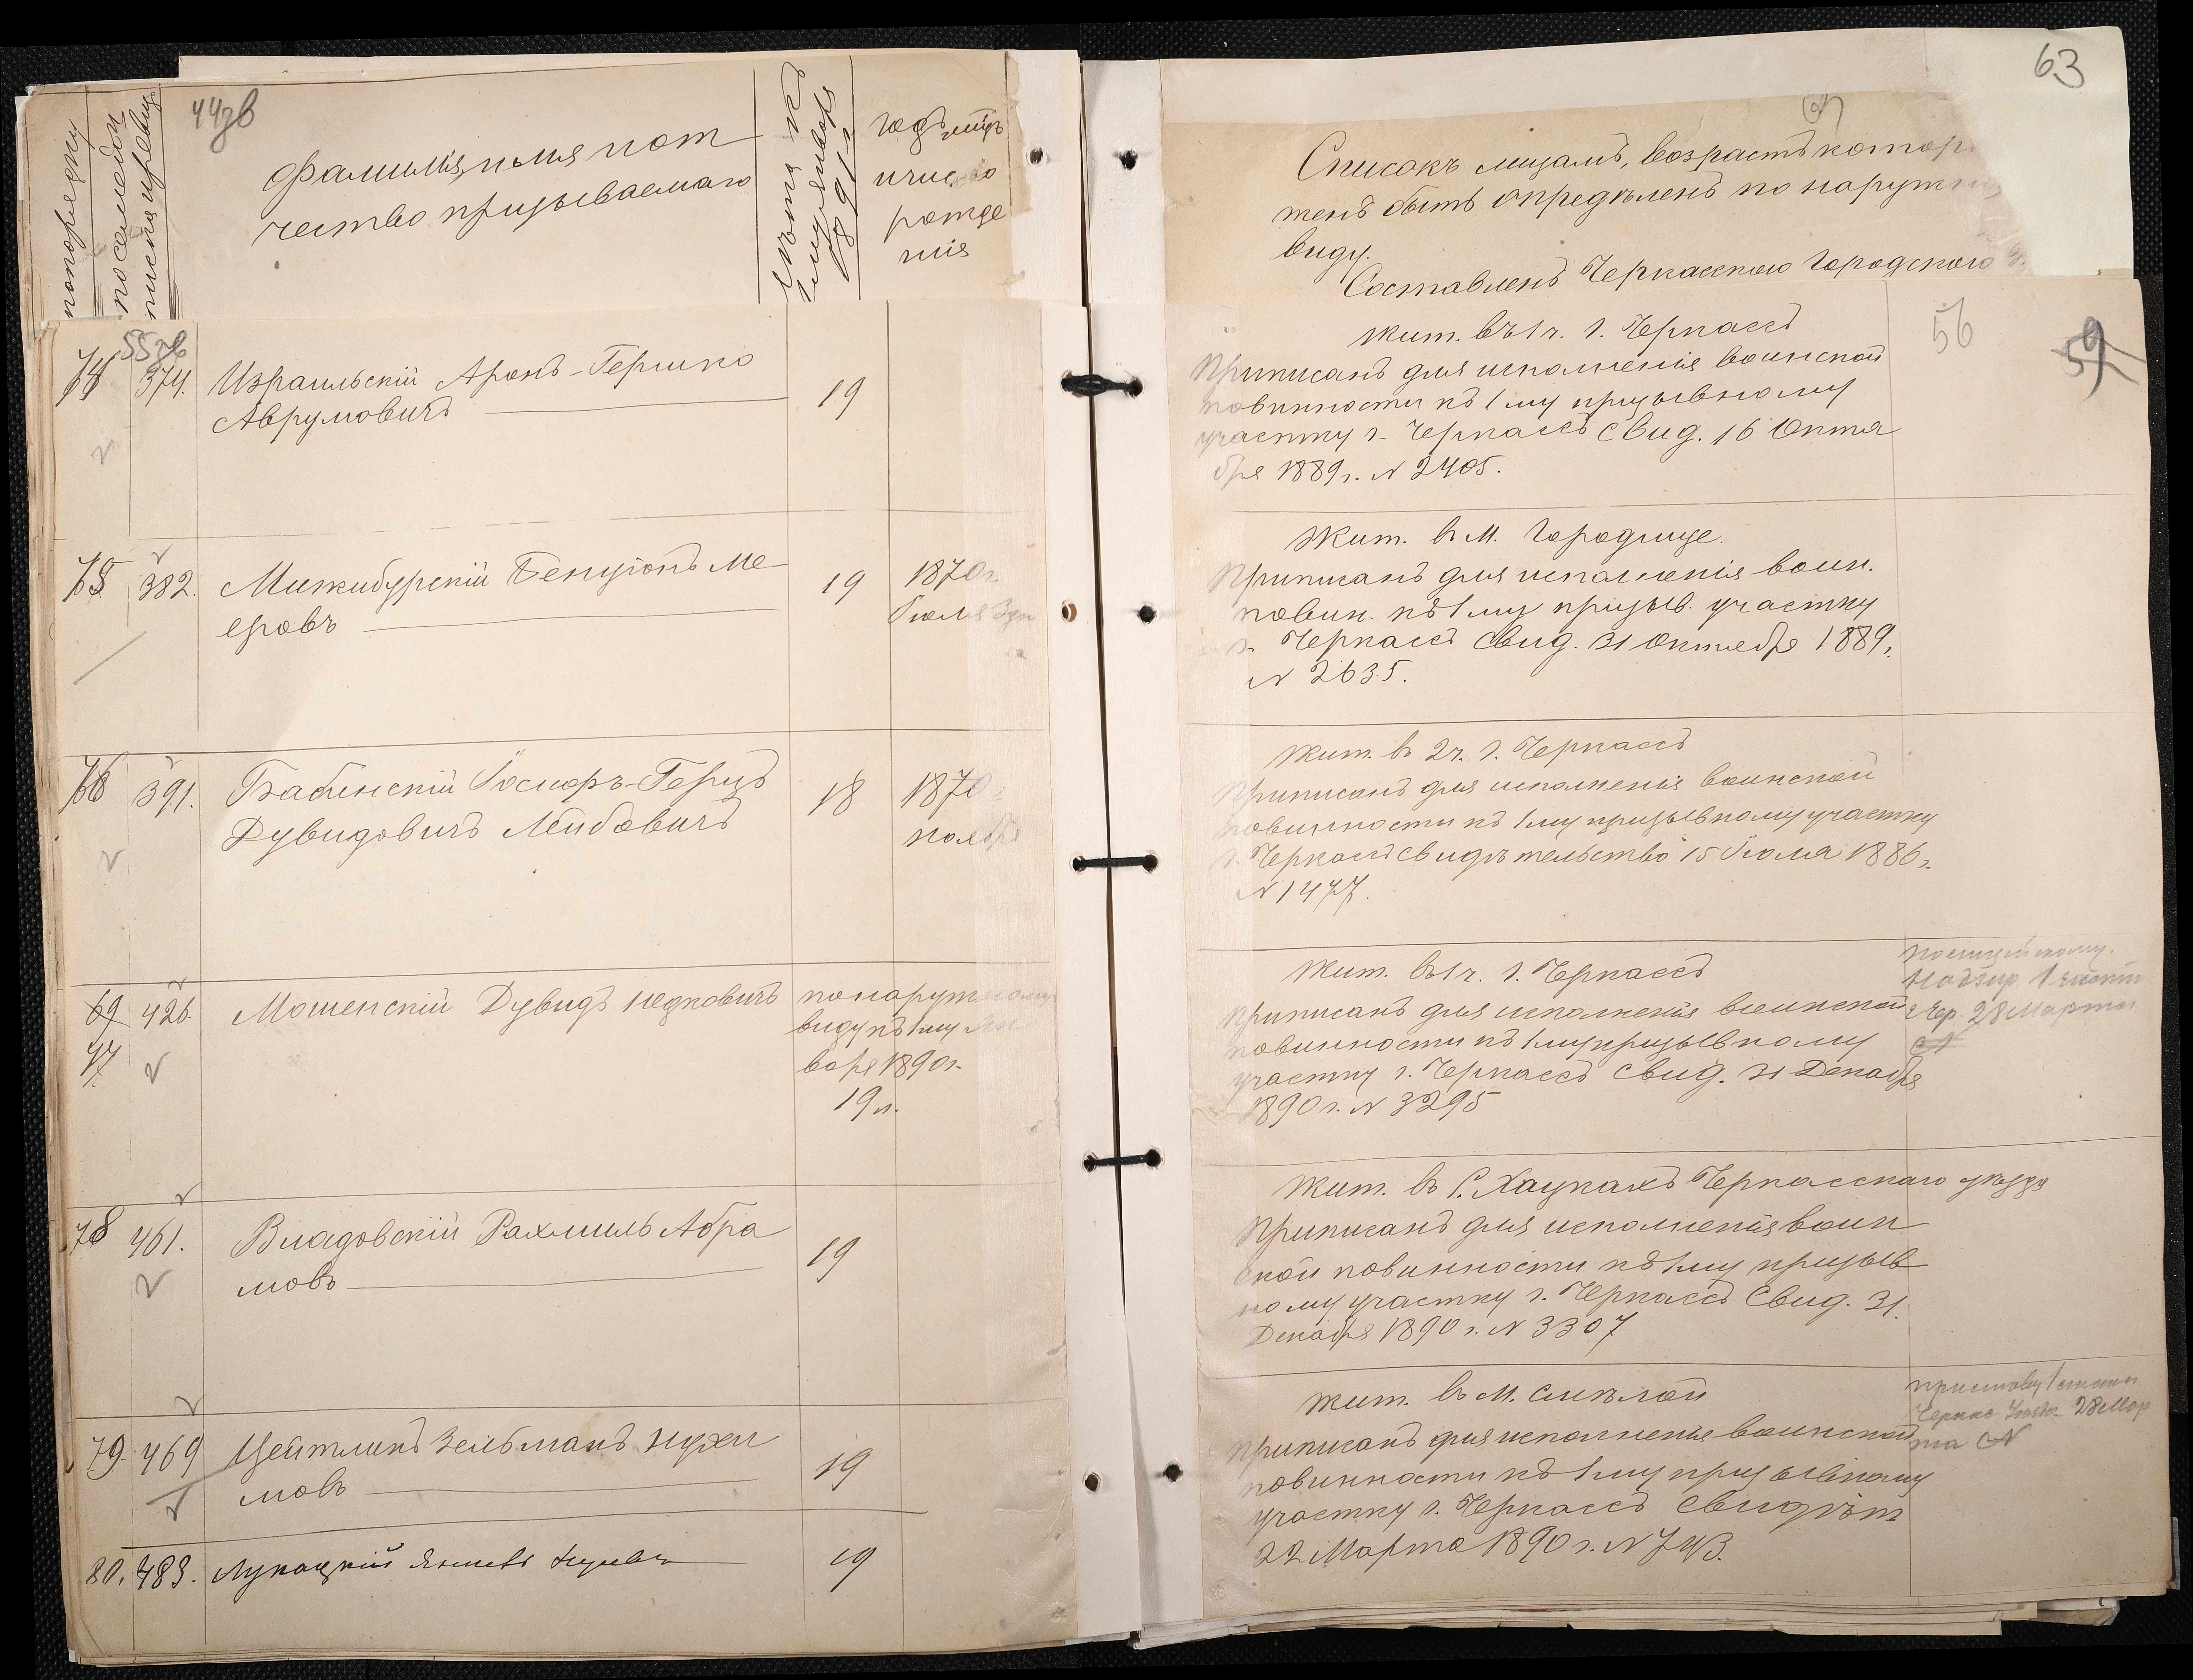 44зв
по порядку
по семейном
писка и ревиз
Фамилія, имя и от
чество призываемаго
Лѣта къ
1 му Января
1891 г.
Годъ, мѣц.
и число
рожде
нія
55зв
74 374. Израильскій Аронъ-Гершко
Аврумовичъ
19
75 382. Межибурскій Бенціонъ Ме-
еровъ
19
1870г.
Іюля
76 391. Бабинскій Іосифъ-Герцъ
Дувидовичъ Лейбовичъ
18
1870
ноября
69 426. Мошенскій Дувидъ Ицковичъ
77
по наружному
виду къ 1 му Ян
варя 1890 г.
19 л.
78 461. Владовскій Рахмиль Абра
мовъ
19
79. 469 Цейтлинъ Зельманъ Нухи
мовъ
19
80. 483. Лукацкій
19
63
Списокъ лицамъ, возрастъ котор
женъ быть опредѣленъ по наружно
виду.
Составленъ Черкасскою Городскою
56
59
Жит. въ 1 ч. г. Черкассъ
Приписанъ для исполненія воинской
повинности къ 1 му призывному
участку г. Черкассъ Свид. 16 Октя
бря 1889 г. N 2405.
Жит. в М. Городище.
Приписанъ для исполненія воин.
повин. къ 1 му призыв. участку
г. Черкассъ Свид. 31 Октября 1889 г.
N 2635.
Жит. в 2 ч. г. Черкассъ
Приписанъ для исполненія воинской
повинности къ 1 му призывному участку
г. Черкассъ свидѣтельство 15 Іюля 1886 г.
N 1477.
Жит. въ 1 ч. г. Черкассъ
Приписанъ для исполненія воинской
повинности къ 1 му призывному
участку г. Черкассъ Свид. 31 Декабря
1890 г. N 3295
Полицейскому
Надзир. 1 части
г. Чер. 28 Марта
N
Жит. в С. Хацкахъ Черкасскаго уѣзда
Приписанъ для исполненія воин
ской повинности къ 1 му призыв
ному участку г. Черкассъ Свид. 31
Декабря 1890 г. N 3307
Жит. в М. Смѣлой
Приписанъ для исполненія воинской
повинности къ 1 му призывному
участку г. Черкассъ Свидѣт
22 Марта 1890 г. N 743.
Приставу 1 стана
28 Мар
та N